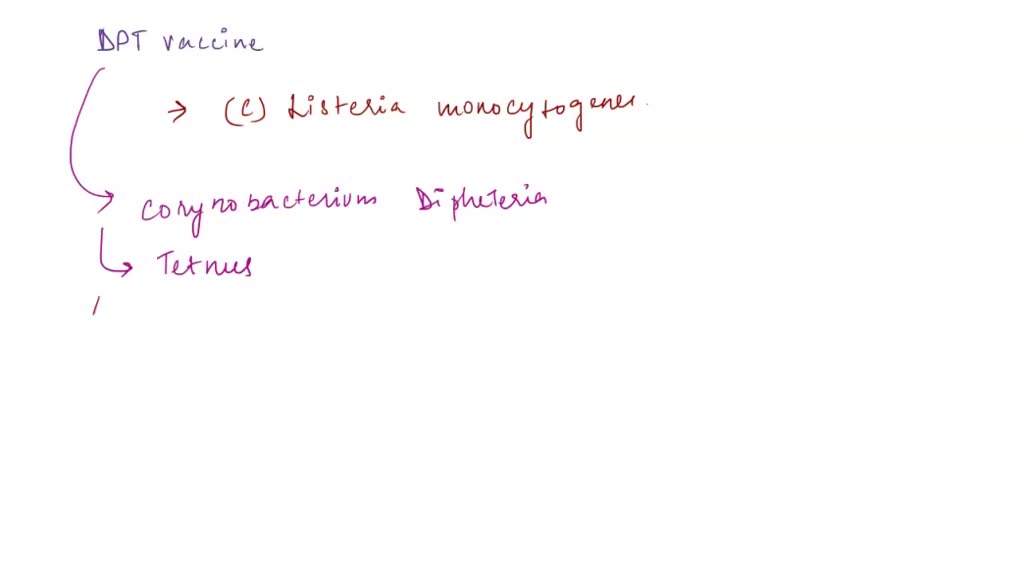 DPT vaccine
→ (c) Listeria monocytogenes.
Corynobacterium Dipheteria
Tetnus